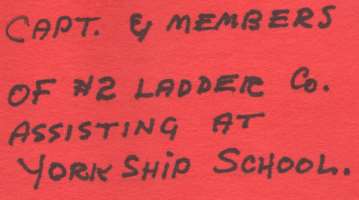 CAPT. & MEMBERS
OF #2 LADDER Co.
ASSISTING AT
YORKSHIP SCHOOL.